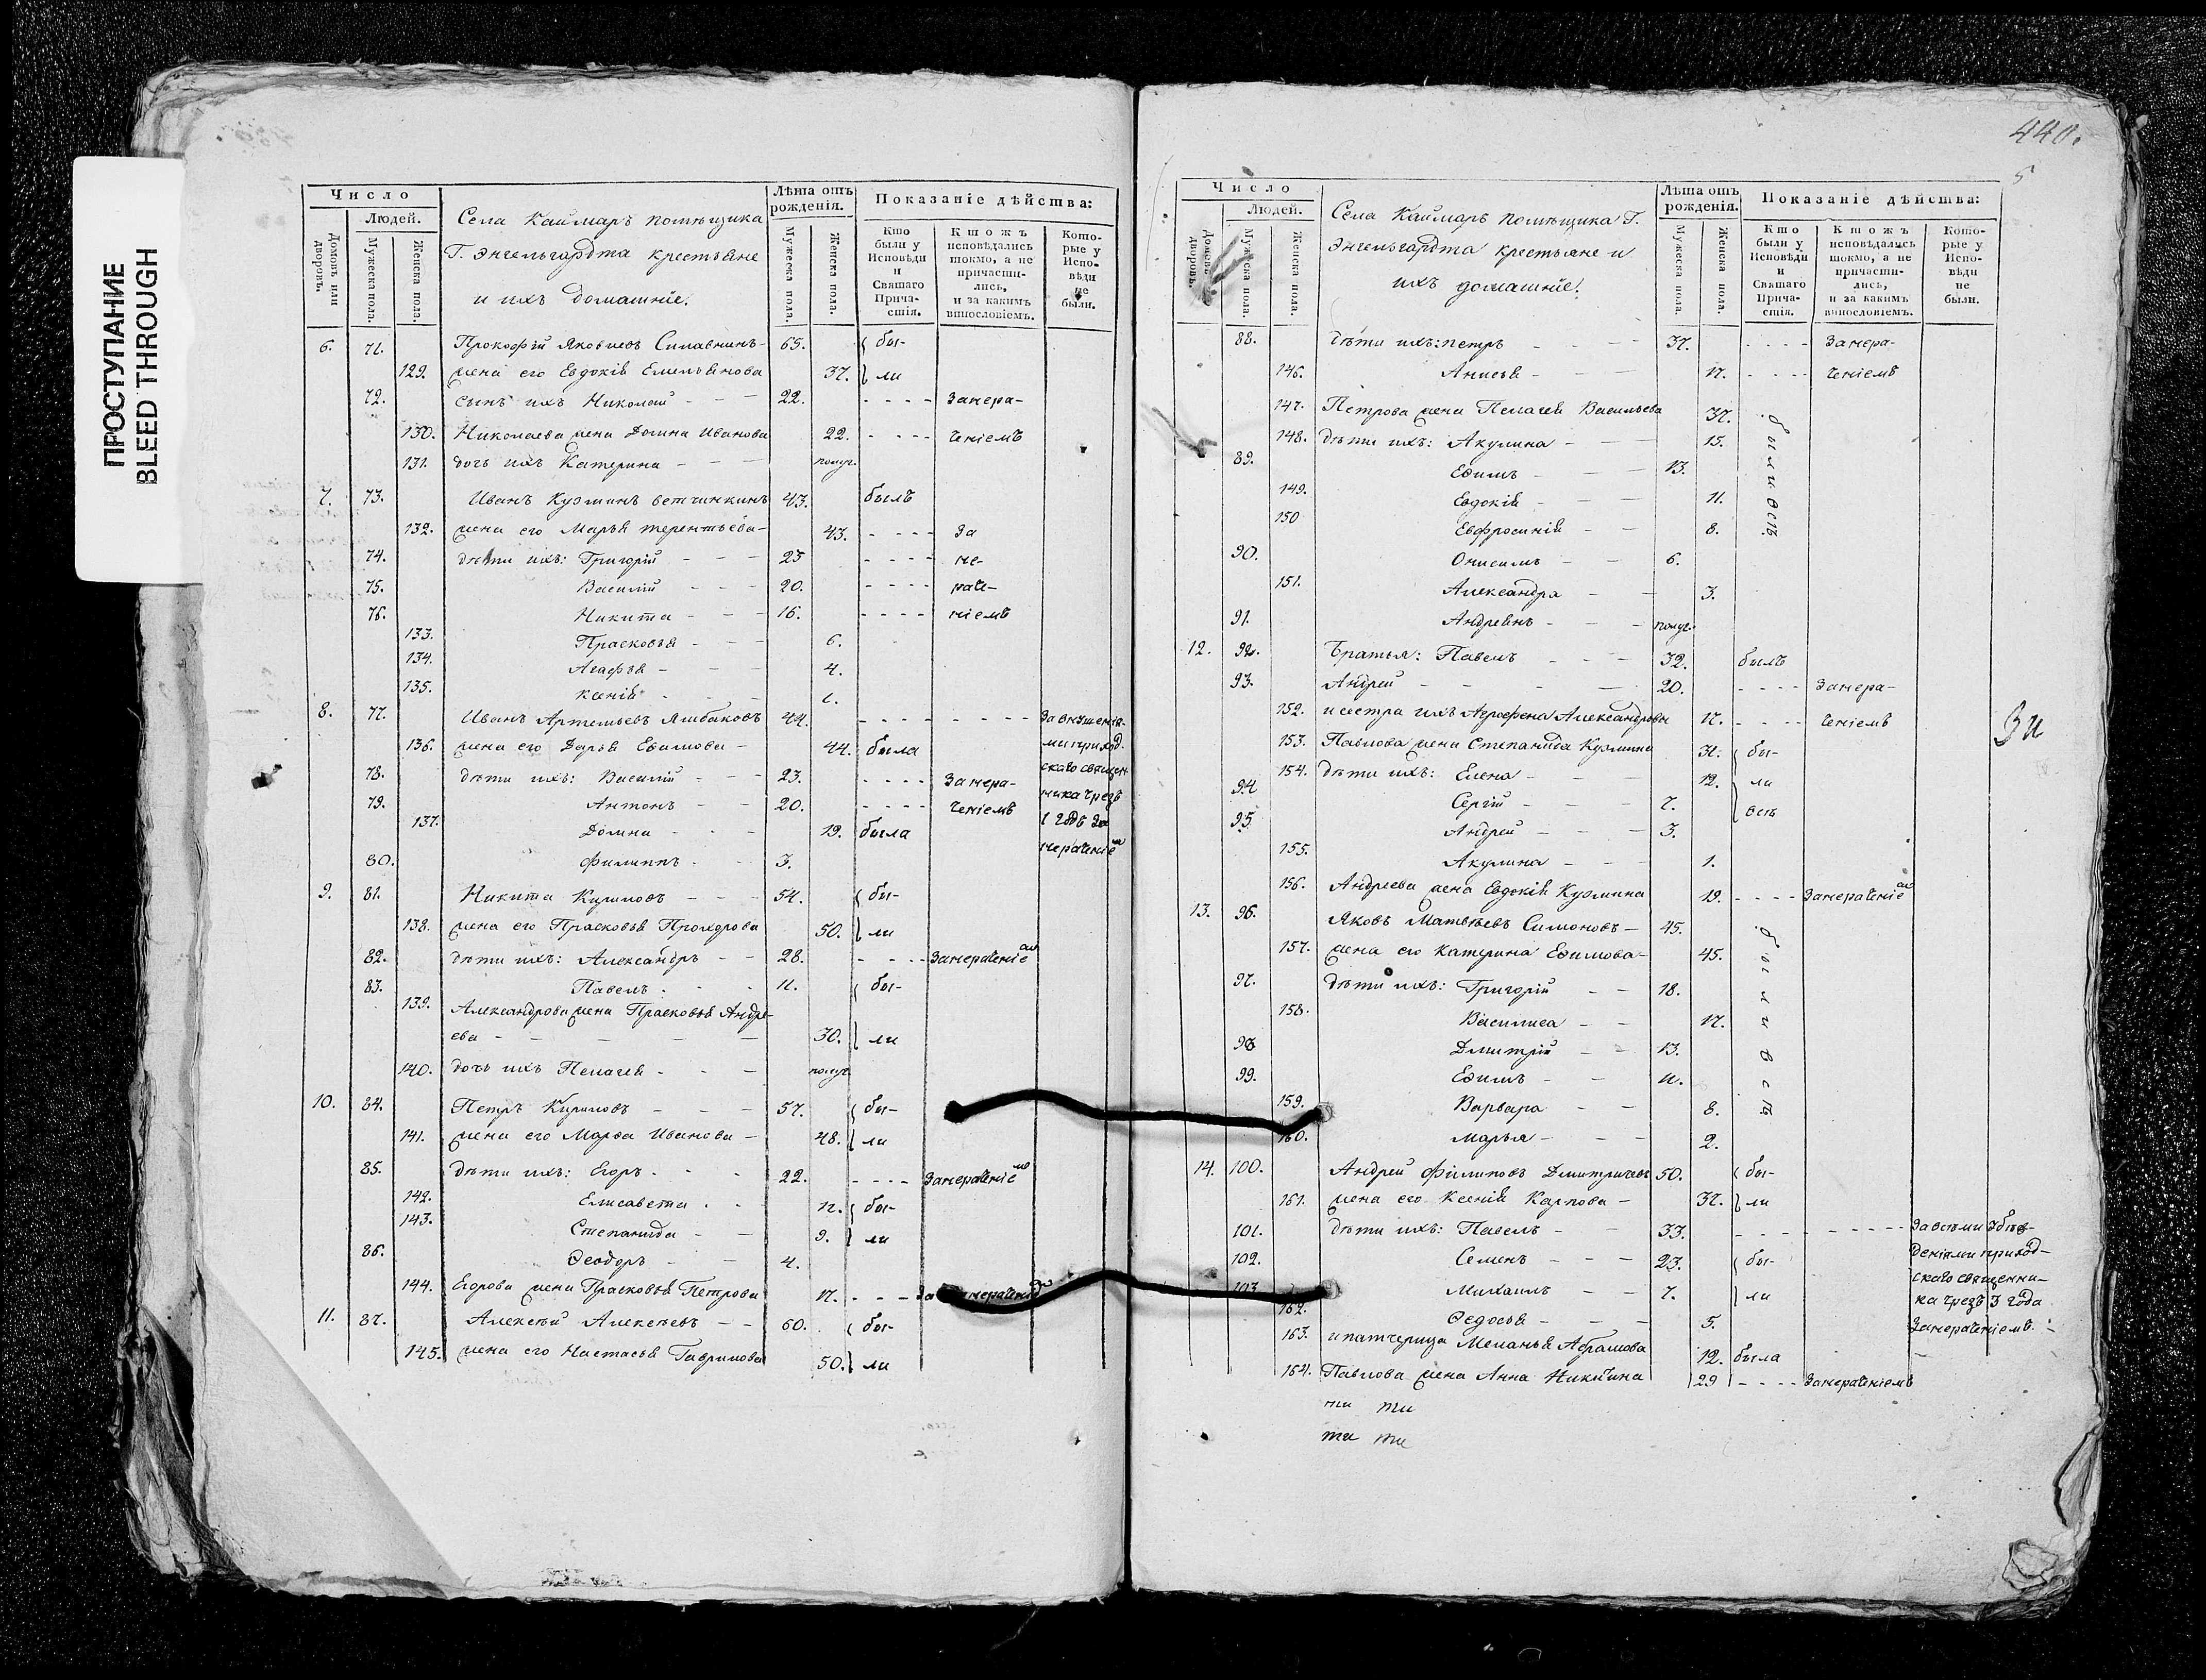 ПРОСТУПАНИЕ
BLEED THROUGH
Число
Людей.
Домовъ или дворовъ.
Мужеска пола.
Женска пола.
Села Каймаръ помѣщика
Г. Энгельгардта крестьяне
и ихъ домашніе.
Лѣта отъ рожденія.
Мужеска пола.
Женска пола.
Показаніе дѣйства:
Кто были у Исповѣди и Святаго Причастія.
Ктожъ исповѣдались токмо, а не причастились, и за какимъ винословіемъ.
Которые у Исповѣди не были.
6. 71. Прокофій Яковлевъ 65. бы-
129. жена его Евдокія Емельянова 37. ли
72. сынъ ихъ Николай - - - 22. - - - - Занера-
130. Николаева жена Домна Иванова 22. - - - - ченіемъ
131. дочь ихъ Катерина - - - полуг.
7. 73. Иванъ Кузминъ Ветчинкинъ 43. былъ
132. жена его Марья Терентьева - 43. - - - - За
74. дѣти ихъ: Григорій - - - 23 - - - - не-
75. Василій - - - 20. - - - - раче-
76. Никита - - - 16. - - - - ніемъ
133. Прасковья - - - 6.
134. Агафья - - - 4.
135. Ксенія - - - 1.
8. 77. Иванъ Артемьевъ 44. - - - - - - - -
136. жена его Дарья Евимова - 44. была
78. дѣти ихъ: Василій - - - 23. - - - - Занера-
79. Антонъ - - 20. - - - - ченіемъ
137. Домна - - - 19. была
80. Филиппъ - - 3.
приход-
скаго священ-
ника чрезъ
1 годъ за
нераченіемъ
9. 81. Никита Кириловъ - - - 54. бы-
138. жена его Прасковья Прохорова 50. ли
82. дѣти ихъ: Александръ - - 28. - - - Занераченіемъ
83. Павелъ - - - 11. бы-
139. Александрова жена Прасковья Андре-
ева - - - - - 30. ли
140. дочь ихъ Пелагея - - - полуг.
10. 84. Петръ Кириловъ - - - 57. бы-
141. жена его Марѳа Иванова - 48. ли
85. дѣти ихъ: Егоръ - - - 22. - - - - Занераченіемъ
142. Елисавета - - 12. бы-
143. Степанида - - 9. ли
86. Ѳеодоръ - - 4.
144. Егорова жена Прасковья Петрова 17. - - -
11. 87. Алексѣй Алексѣевъ - - 60. бы-
145. жена его Настасья Гаврилова 50. ли
440.
5
Число
Людей.
Домовъ или дворовъ.
Мужеска пола.
Женска пола.
Села Каймаръ помѣщика Г.
Энгельгардта крестьяне и
ихъ домашніе.
Лѣта отъ рожденія.
Мужеска пола.
Женска пола.
Показаніе дѣйства:
Кто были у Исповѣди и Святаго Причастія.
Ктожъ исповѣдались токмо, а не причастились, и за какимъ винословіемъ.
Которые у Исповѣди не были.
88. дѣти ихъ: Петръ - - - - 37. - - - - Занера-
146. Анисья - - - 17. - - - - ченіемъ
147. Петрова жена Пелагея Васильева 37.
148. дѣти ихъ: Акулина - - - 15.
89. Евимъ - - 13.
149. Евдокія - - - 11.
150 Евфросинія - - 8.
были всѣ
90. Онисимъ - - 6.
151. Александра - - 3.
91. Андреянъ - - - полуг.
12. 92. Братья: Павелъ - - - 32. былъ
93. Андрей - - - - 20. - - - - Занера-
152. и сестра ихъ Агрофена Александрова 17. - - - - ченіемъ
153. Павлова жена Степанида Кузмина 31. бы-
154. дѣти ихъ: Елена - - - 12. ли
94 Сергій - - - 7. всѣ
95 Андрей - - 3.
155. Акулина - - - 1.
156. Андреева жена Евдокія Кузмина 19. - - - - Занераченіемъ
13. 96. Яковъ Матвѣевъ Симоновъ - 45.
157. жена его Катерина Евимова - 45.
97. дѣти ихъ: Григорій - - 18.
158. Василиса - - 17.
98 Дмитрій - - 13.
99. Евимъ - - 11.
159. Варвара - - 8.
160. Марья - - - 2.
были всѣ
14. 100. Андрей Филиповъ Дмитричевъ 50. бы-
161. жена его Ксенія Карпова - 37. ли
101. дѣти ихъ: Павелъ - - 33. - - - - - - - -
102. Семенъ - - - 23. бы-
103 Михаилъ - - 7. ли
162. Ѳедосья - - - 5.
163. и патчерица Меланья Абрамова 12. была
164. Павлова жена Анна Никитина 29 - - - - Занераченіемъ
приход-
скаго священни-
ка чрезъ 3 года
Занераченіемъ.
ти ти
ти ти